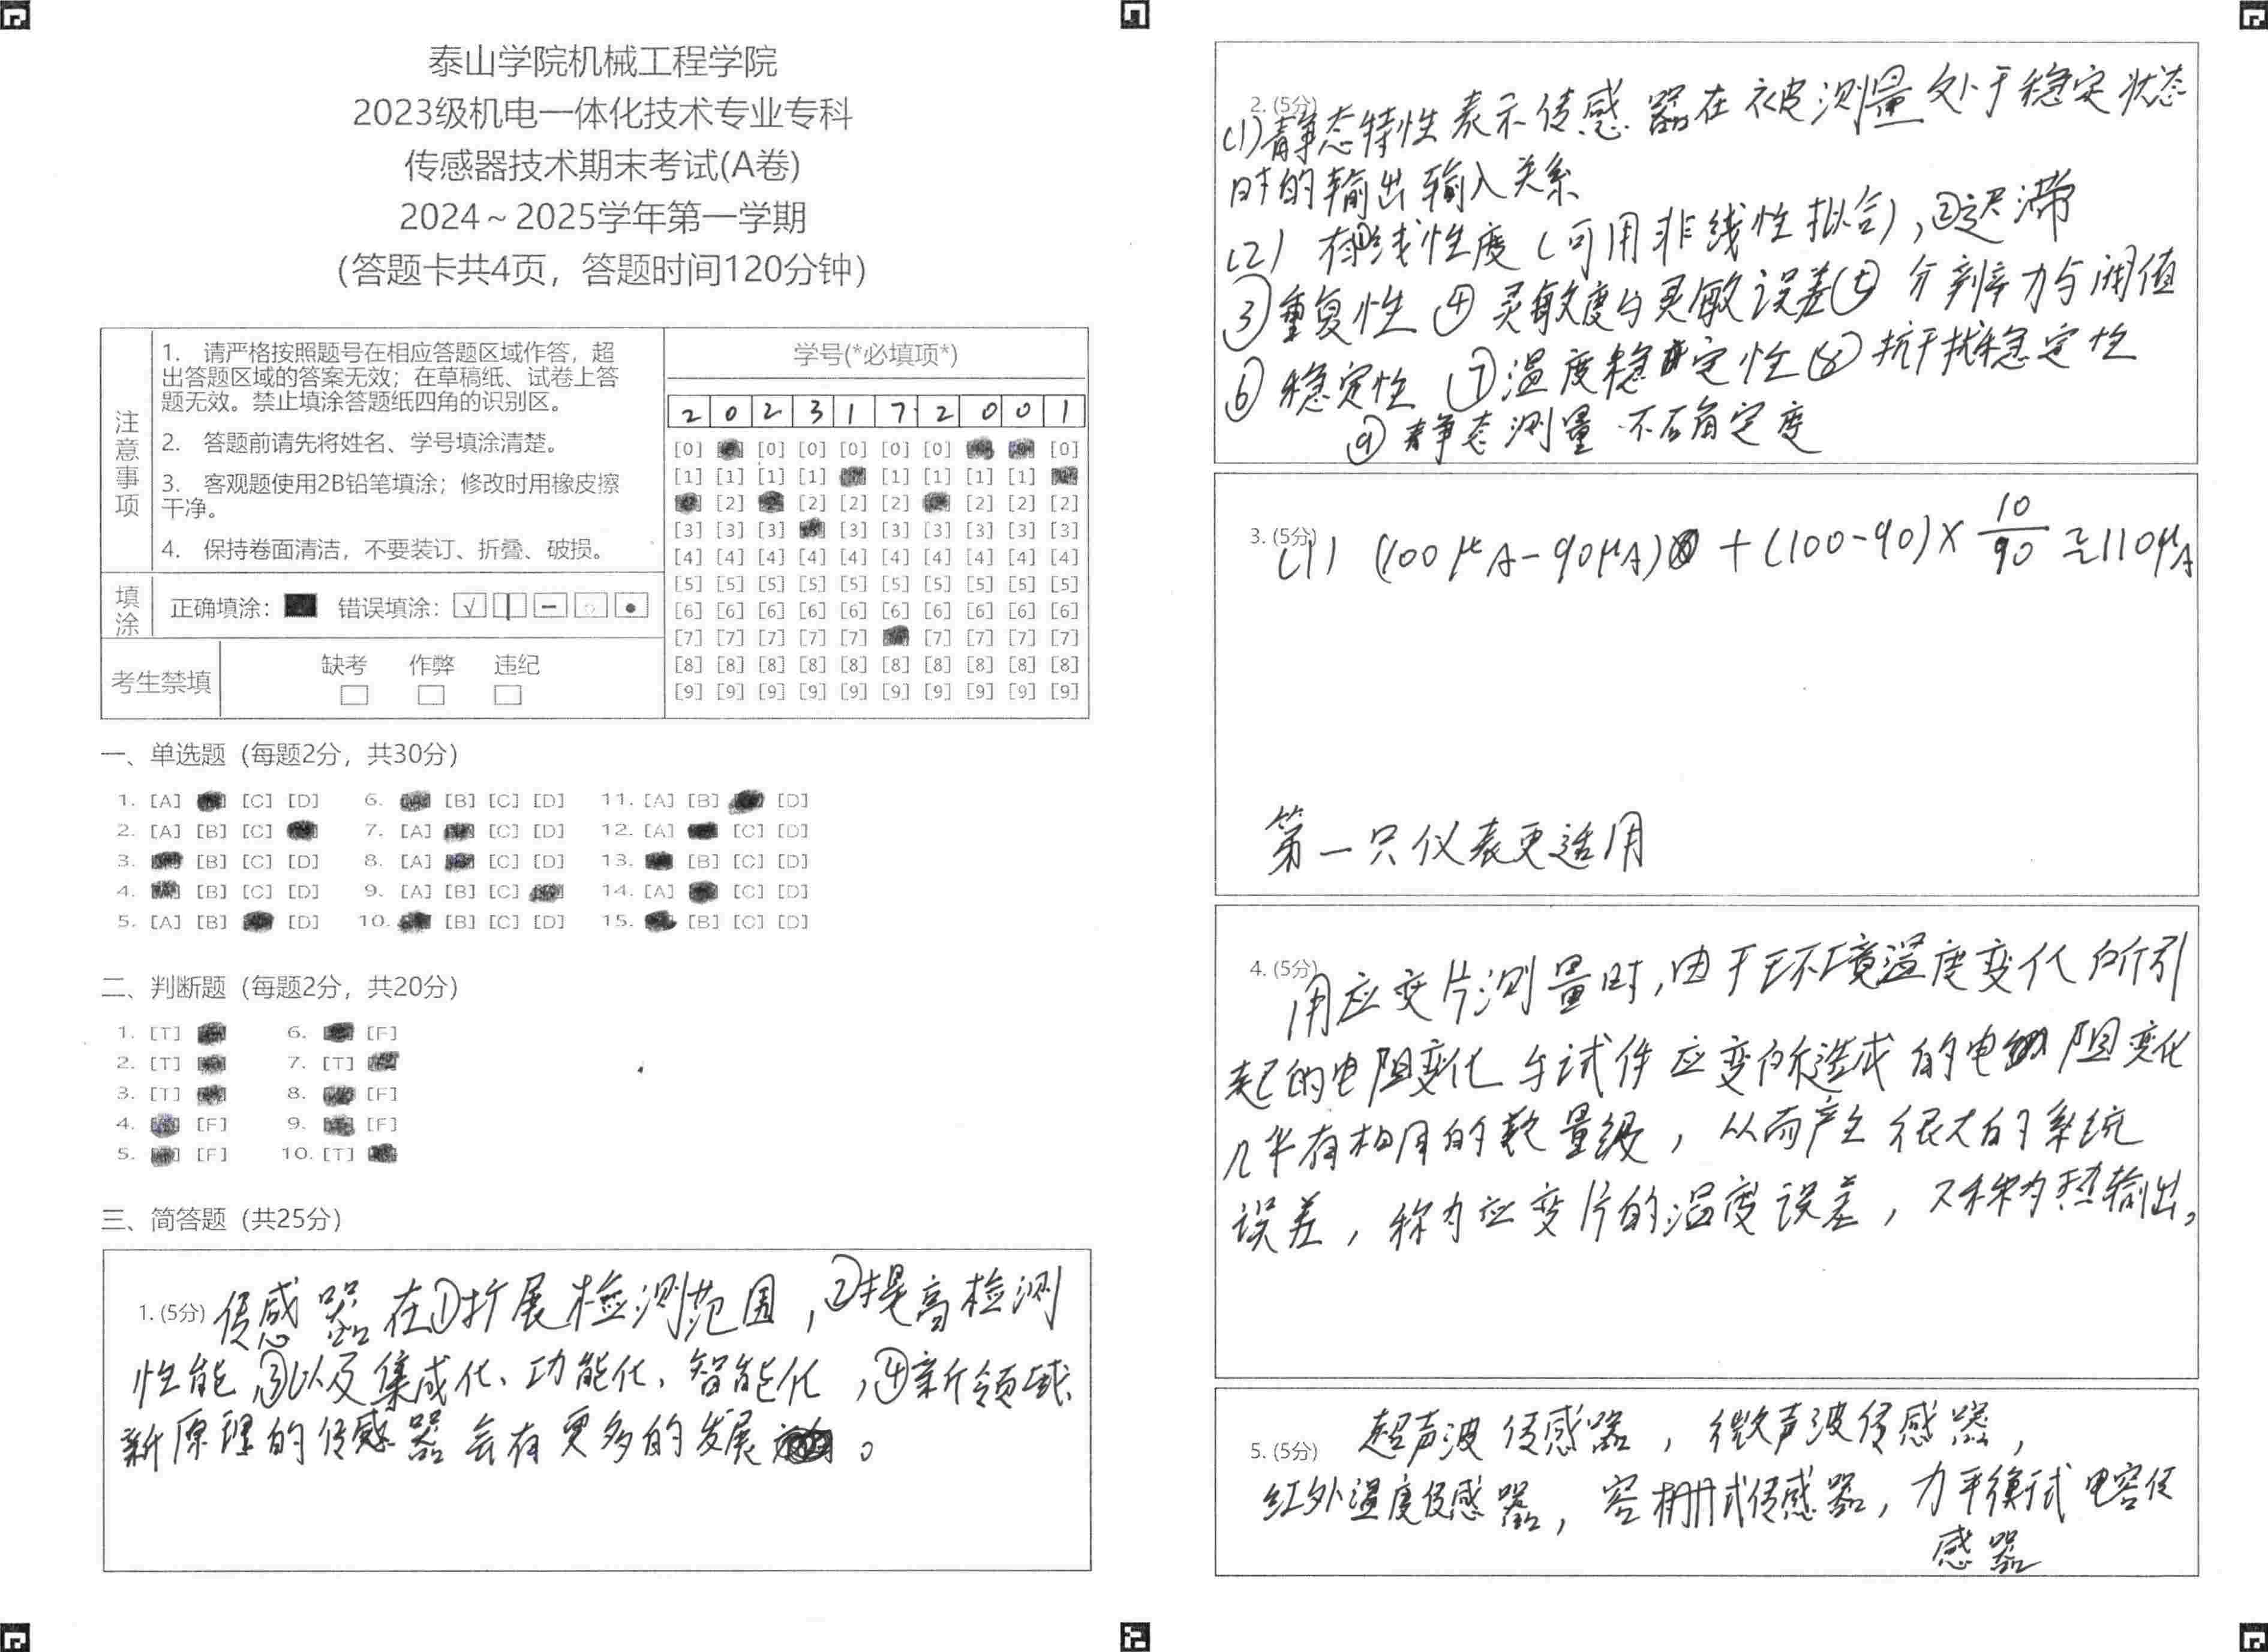 泰山学院机械工程学院
2023级机电一体化技术专业专科
传感器技术期末考试(A卷)
2024～2025学年第一学期
(答题卡共4页，答题时间120分钟)
注意事项
1. 请严格按照题号在相应答题区域作答，超
出答题区域的答案无效；在草稿纸、试卷上答
题无效。禁止填涂答题纸四角的识别区。
2. 答题前请先将姓名、学号填涂清楚。
3. 客观题使用2B铅笔填涂；修改时用橡皮擦
干净。
4. 保持卷面清洁，不要装订、折叠、破损。
填涂 正确填涂： 错误填涂：
考生禁填 缺考 作弊 违纪
学号(*必填项*)
2 0 2 3 1 7 2 0 0 1
[0] [0] [0] [0] [0] [0] [0]
[1] [1] [1] [1] [1] [1] [1] [1]
[2] [2] [2] [2] [2] [2] [2]
[3] [3] [3] [3] [3] [3] [3] [3] [3]
[4] [4] [4] [4] [4] [4] [4] [4] [4] [4]
[5] [5] [5] [5] [5] [5] [5] [5] [5] [5]
[6] [6] [6] [6] [6] [6] [6] [6] [6] [6]
[7] [7] [7] [7] [7] [7] [7] [7] [7]
[8] [8] [8] [8] [8] [8] [8] [8] [8] [8]
[9] [9] [9] [9] [9] [9] [9] [9] [9] [9]
一、单选题 (每题2分，共30分)
1. [A] [C] [D] 6. [B] [C] [D] 11. [A] [B] [D]
2. [A] [B] [C] 7. [A] [C] [D] 12. [A] [C] [D]
3. [B] [C] [D] 8. [A] [C] [D] 13. [B] [C] [D]
4. [B] [C] [D] 9. [A] [B] [C] 14. [A] [C] [D]
5. [A] [B] [D] 10. [B] [C] [D] 15. [B] [C] [D]
二、判断题 (每题2分，共20分)
1. [T] 6. [F]
2. [T] 7. [T]
3. [T] 8. [F]
4. [F] 9. [F]
5. [F] 10. [T]
三、简答题 (共25分)
1. (5分) 传感器在①扩展检测范围，②提高检测
性能③以及集成化、功能化、智能化，④新领域
新原理的传感器会有更多的发展。
2. (5分)
(1)静态特性表示传感器在被测量处于稳定状态
时的输出输入关系
(2) 有①线性度(可用非线性拟合)，②迟滞
③重复性 ④灵敏度与灵敏误差⑤分辨率力与阈值
⑥稳定性 ⑦温度稳定性⑧抗干扰稳定性
⑨静态测量不确定度
3. (5分)
(1) (100μA-90μA) + (100-90)× 10/90 ≈110μA
第一只仪表更适用
4. (5分)
用应变片测量时,由于环境温度变化所引
起的电阻变化与试件应变所造成的电阻变化
几乎有相同的数量级，从而产生很大的系统
误差，称为应变片的温度误差，又称为热输出。
5. (5分) 超声波传感器，微声波传感器，
红外温度传感器，容栅式传感器，力平衡式电容传
感器